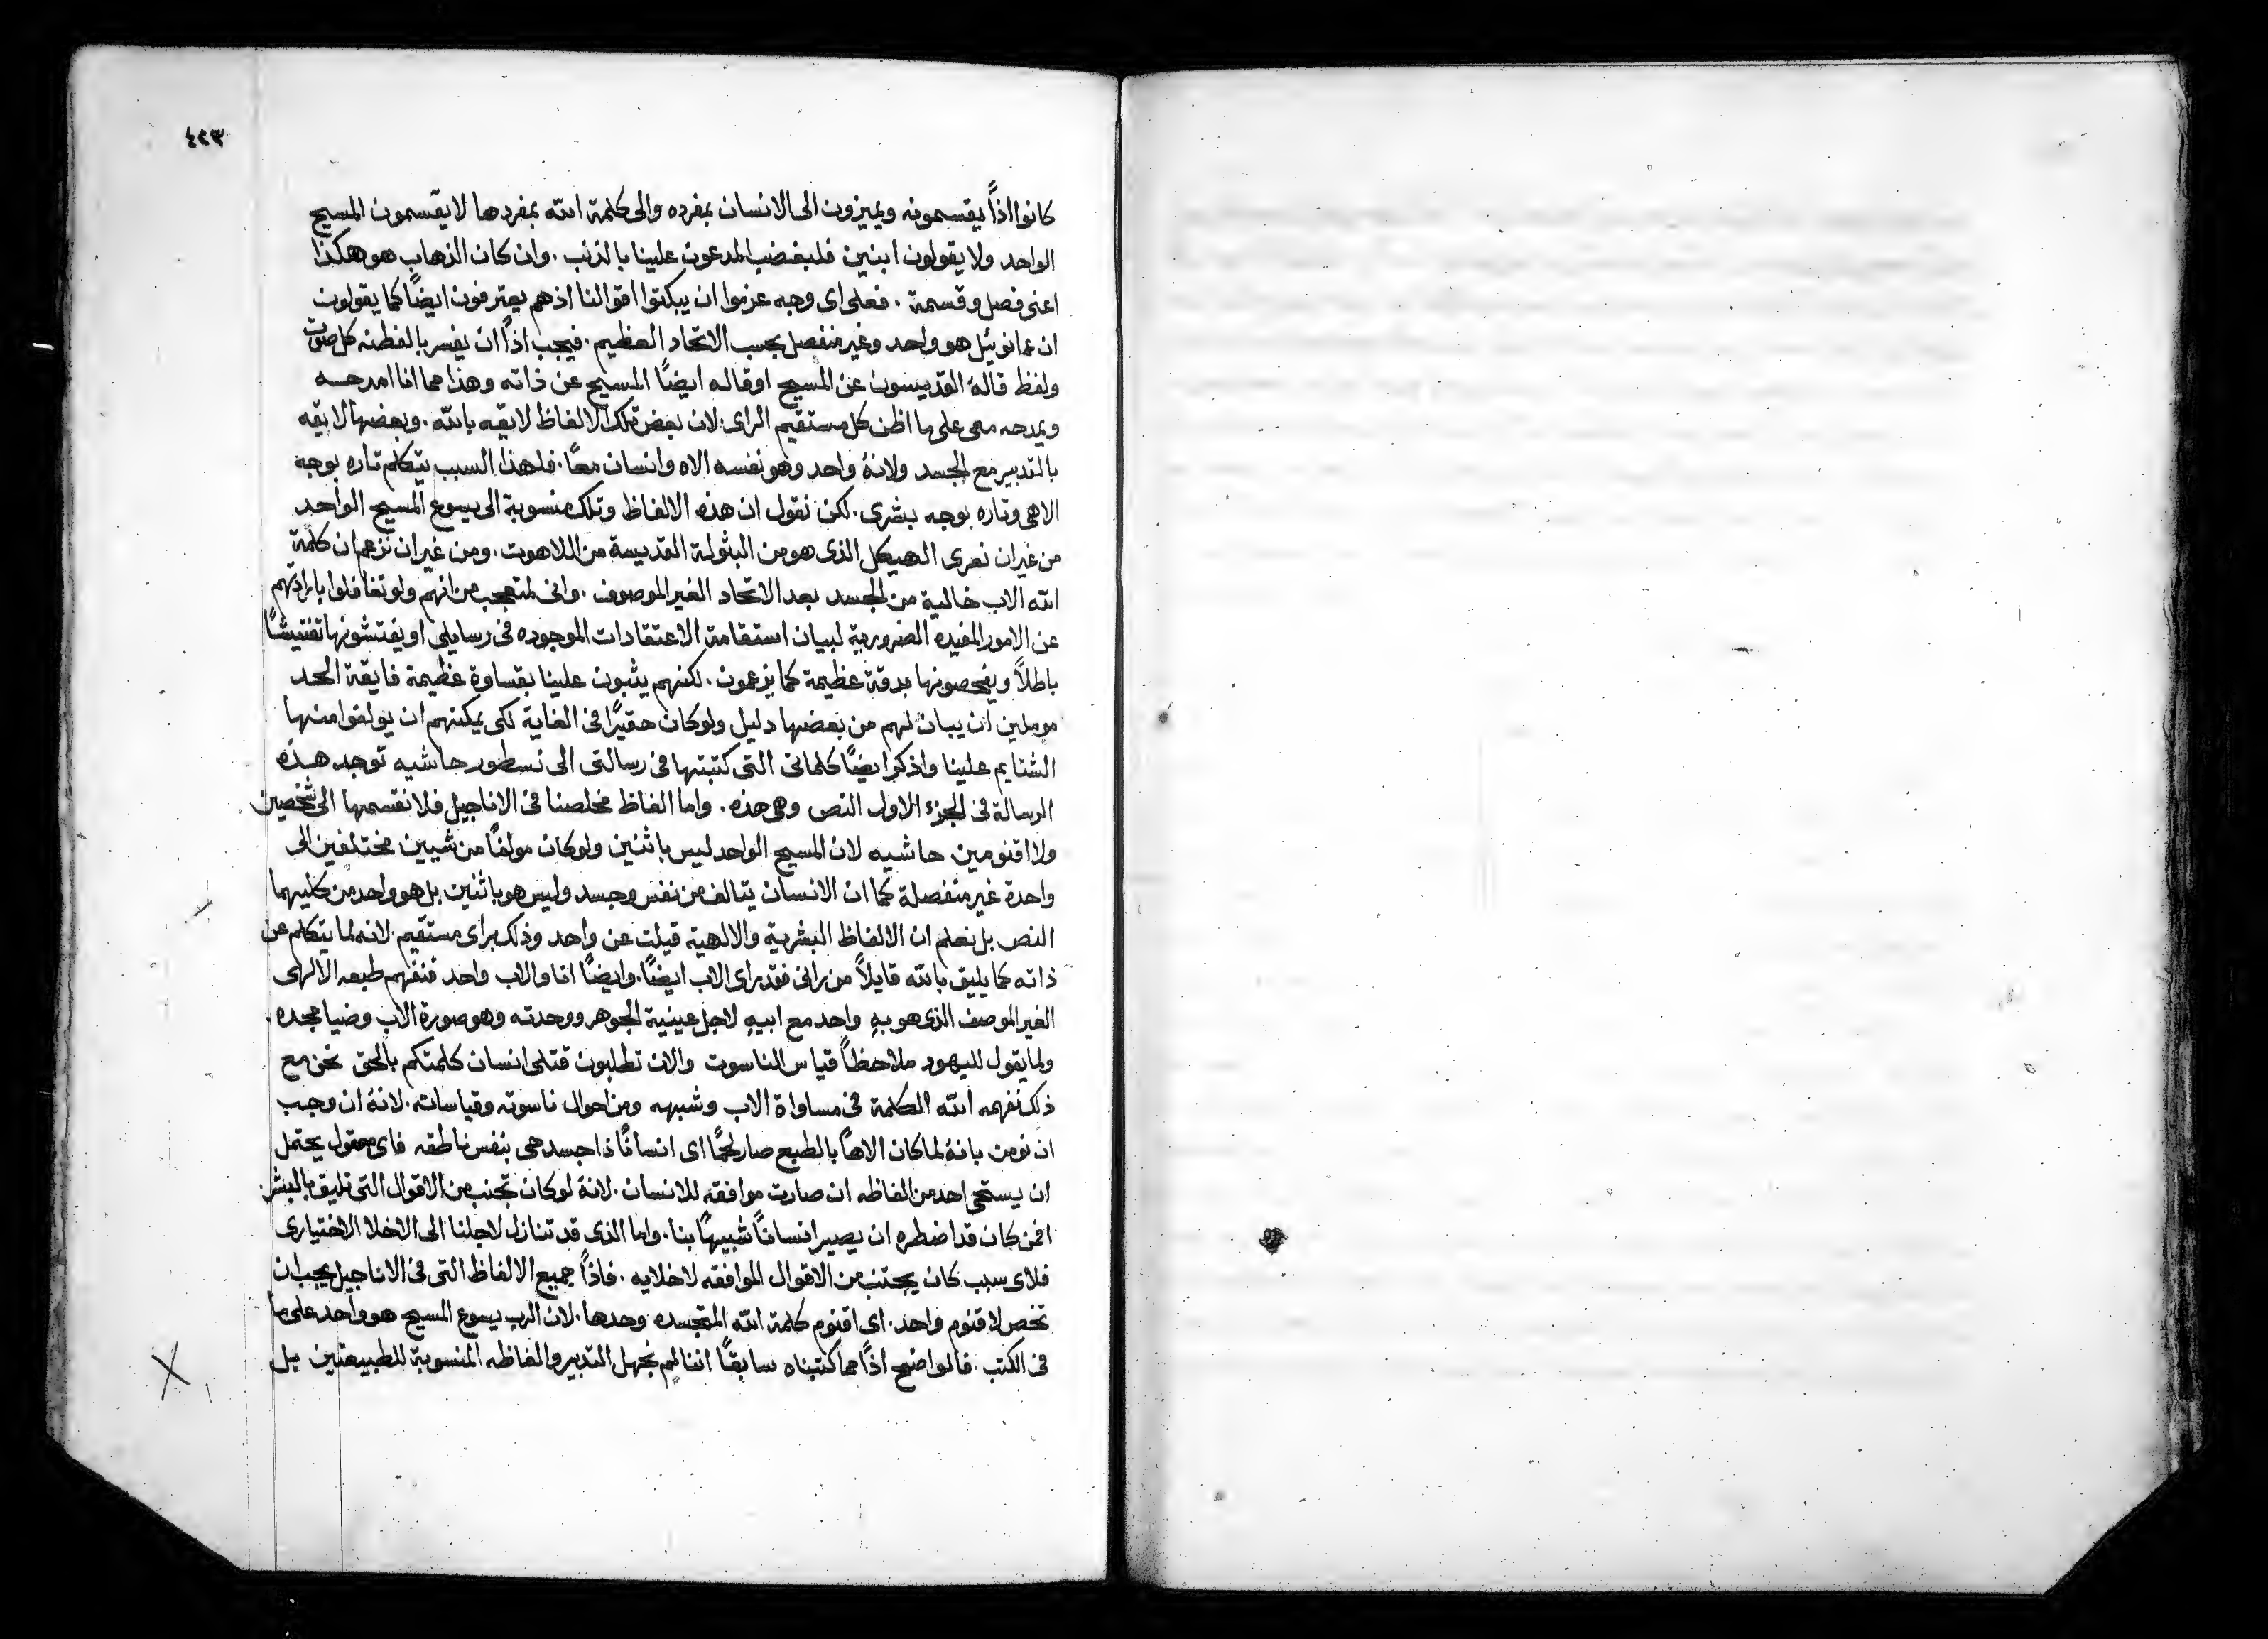 ٤٢٣
كانوا اذاً يقسمونه ويميزون الى الانسان بمفرده والى كلمة الله بمفردها لا يقسمون المسيح
الواحد ولا يقولون ابنين فليغضب المدعون علينا بالذنب . وان كان الذهاب هو هكذا
اعنى فصل وقسمة . فعلى اى وجه عزموا ان يبكتوا اقوالنا اذ هم يعترفون ايضاً كما يقولون
ان عمانوئيل هو واحد وغير منفصل بحسب الاتحاد العظيم . فيجب اذاً ان يفسر بالفطنه كل صوت
ولفظ قاله القديسون عن المسيح او قاله ايضاً المسيح عن ذاته وهذا مما انا امدحه
ويمدحه معى على ما اظن كل مستقيم الراى لان بعض تلك الالفاظ لايقه بالله . وبعضها لايقه
بالتدبير مع الجسد ولانهُ واحد وهو نفسه الاه وانسان معاً . فلهذا السبب يتكلم تاره بوجه
الاهى وتاره بوجه بشرى . لكن نقول ان هذه الالفاظ وتلك منسوبة الى يسوع المسيح الواحد
من غير ان نعرى الهيكل الذى هو من البثولة القديسة من اللاهوت . ومن غير ان نزعم ان كلمة
الله الاب خالية من الجسد بعد الاتحاد الغير الموصوف . وانى لمتعجب من انهم ولو تغافلوا بارادتهم
عن الامور المفيده الضرورية لبيان استقامة الاعتقادات الموجوده فى رسايلى او يفتشونها تفتيشاً
باطلاً ويفحصونها بدقة عظيمة كما يزعمون . لكنهم يثبون علينا بقساوة عظيمة فايقة الحد
موملين ان يبان لهم من بعضها دليل ولو كان حقيراً فى الغاية لكى يمكنهم ان يولفوا منها
الشتايم علينا واذكر ايضاً كلماتى التى كتبتها فى رسالتى الى نسطور حاشيه توجد هذه
الرسالة فى الجزء الاول النص وهى هذه . واما الفاظ مخلصنا فى الاناجيل فلا نقسمها الى شخصين
ولا اقنومين حاشيه لان المسيح الواحد ليس باثنين ولو كان مولفاً من شيين مختلفين الى
واحدة غير منفصلة كما ان الانسان يتالف من نفس وجسد وليس هو باثنين بل هو واحد من كليهما
النص بل نعلم ان الالفاظ البشرية والالهية قيلت عن واحد وذلك براى مستقيم لانه لما يتكلم عن
ذاته كما يليق بالله قايلاً من رانى فقد راى الاب ايضاً . وايضاً انا والاب واحد فنفهم طبعه الالهى
الغير الموصف الذى هو بهِ واحد مع ابيهِ لاجل عينية الجوهر ووحدته وهو صورة الاب وضيا مجده .
ولما يقول لليهود ملاحظاً قياس الناسوت والان تطلبون قتلى انسان كلمتكم بالحق نحن مع
ذلك نفهمه الله الكلمة فى مساواة الاب وشبهه ومن احوال ناسوته وقياساته . لانهُ ان وجب
ان نومن بانهُ لما كان الاهاً بالطبع صار لحماً اى انساناً ذا جسد حى بنفس ناطقه فاى معقول يحتمل
ان يستحى احد من الفاظه ان صارت موافقه للانسان . لانهُ لو كان تجنب من الاقوال التى تليق بالبشر
افمن كان قد اضطره ان يصير انساناً شبيهاً بنا . واما الذى قد تنازل لاجلنا الى الاخلا الاختيارى
فلاى سبب كان يجتنب من الاقوال الموافقه لاخلايه . فاذاً جميع الالفاظ التى فى الاناجيل يجب ان
تخص لاقنوم واحد . اى اقنوم كلمة الله المتجسده وحدها . لان الرب يسوع المسيح هو واحد على ما
فى الكتب . فالواضح اذاً مما كتبناه سابقاً اننا لم نجهل التدبير والفاظه المنسوبة للطبيعتين بل